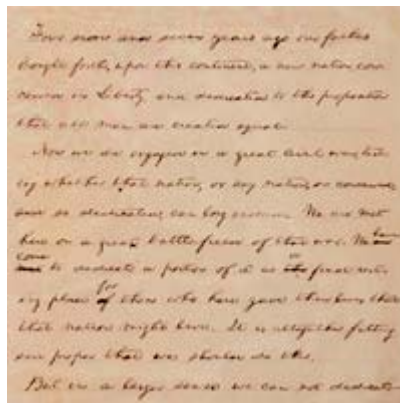 Four score and seven years ago our fathers
brought forth, upon this continent, a new nation, con-
ceived in Liberty, and dedicated to the proposition
that all men are created equal.
Now we are engaged in a great civil war, test-
ing whether that nation, or any nation, so conceived,
and so dedicated, can long endure. We are met
here on a great battle-field of that war. We have
come to dedicate a portion of it as the final rest-
ing place for those who here gave their lives that
that nation might live. It is altogether fitting
and proper that we should do this.
But in a larger sense we can not dedicate